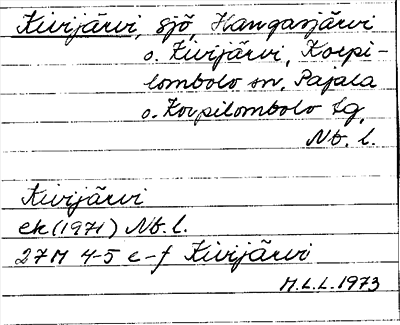 Kivijärvi, sjö, Kangasjärvi
o. Kivijärvi, Korpi-
lombolo sn, Pajala
o. Korpilombolo tg,
Nb. l.
Kivijärvi
ek (1971) Nb. l.
27M 4-5 e-f Kivijärvi
M.L.L. 1973